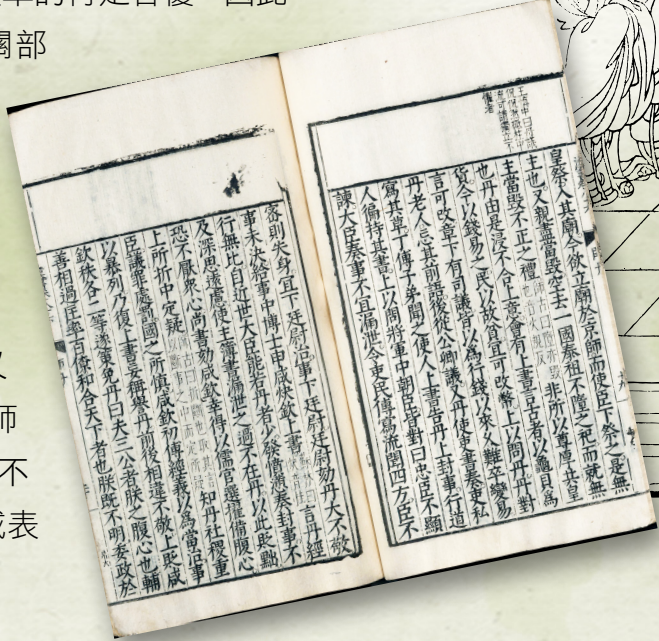 因此
部
又
師
不
表
皇祭入其廟今欲立廟於京師而使臣下祭之是無
主也又親盡當毀空去一國泰祖不墮之祀而就無
主當毀不正之禮 非所以尊厚共皇
也丹由是浸不合上意會有上書言古者以龜貝為
貨今以錢易之民以故貧宜可改幣上以問丹丹對
言可改章下有司議皆以為行錢以來久難卒變易
丹老人忘其前語後從公卿議又丹使吏書奏吏私
寫其草丁傅子弟聞之使人上書告丹上封事行道
人徧持其書上以問將軍中朝臣皆對曰忠臣不顯
諫大臣奏事不宜漏泄令吏民傳寫流聞四方臣不
密則失身宜下廷尉治事下廷尉廷尉劾丹大不敬
事未決給事中博士申咸炔欽上書 言丹經
行無比自近世大臣能若丹者少發憤懣奏封事不
及深思遠慮使主簿書漏泄之過不在丹以此貶黜
恐不厭眾心尚書劾咸欽幸得以儒官選擢備腹心
上所折中定疑 知丹社稷重
臣議罪處罰國之所慎咸欽初傅經義以為當治事
以暴列乃復上書妄稱譽丹前後相違不敬上貶咸
欽秩各二等遂策免丹曰夫三公者朕之腹心也輔
善相過匡率百僚和合天下者也朕既不明委政於